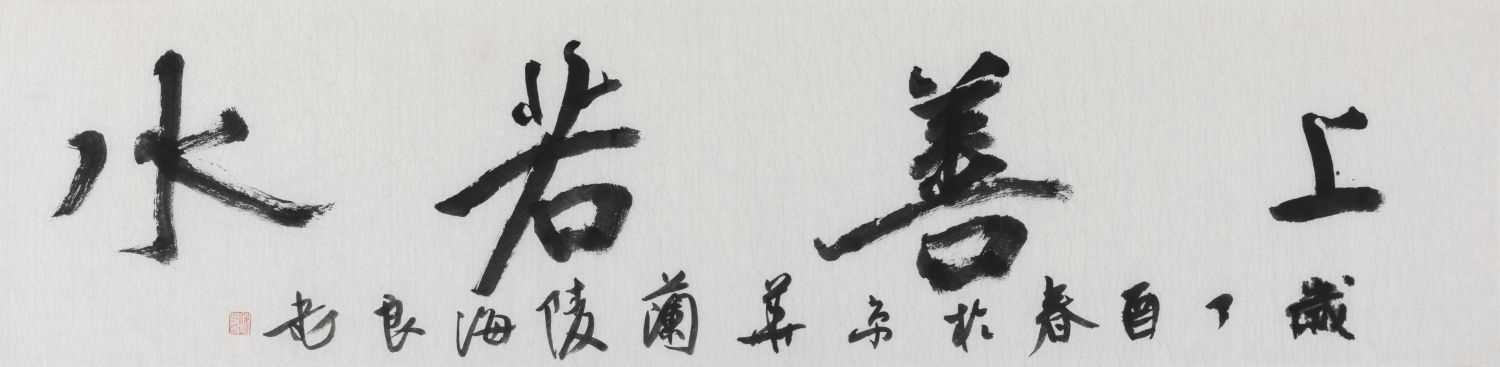 上善若水
歲丁酉春於京華蘭陵海良書